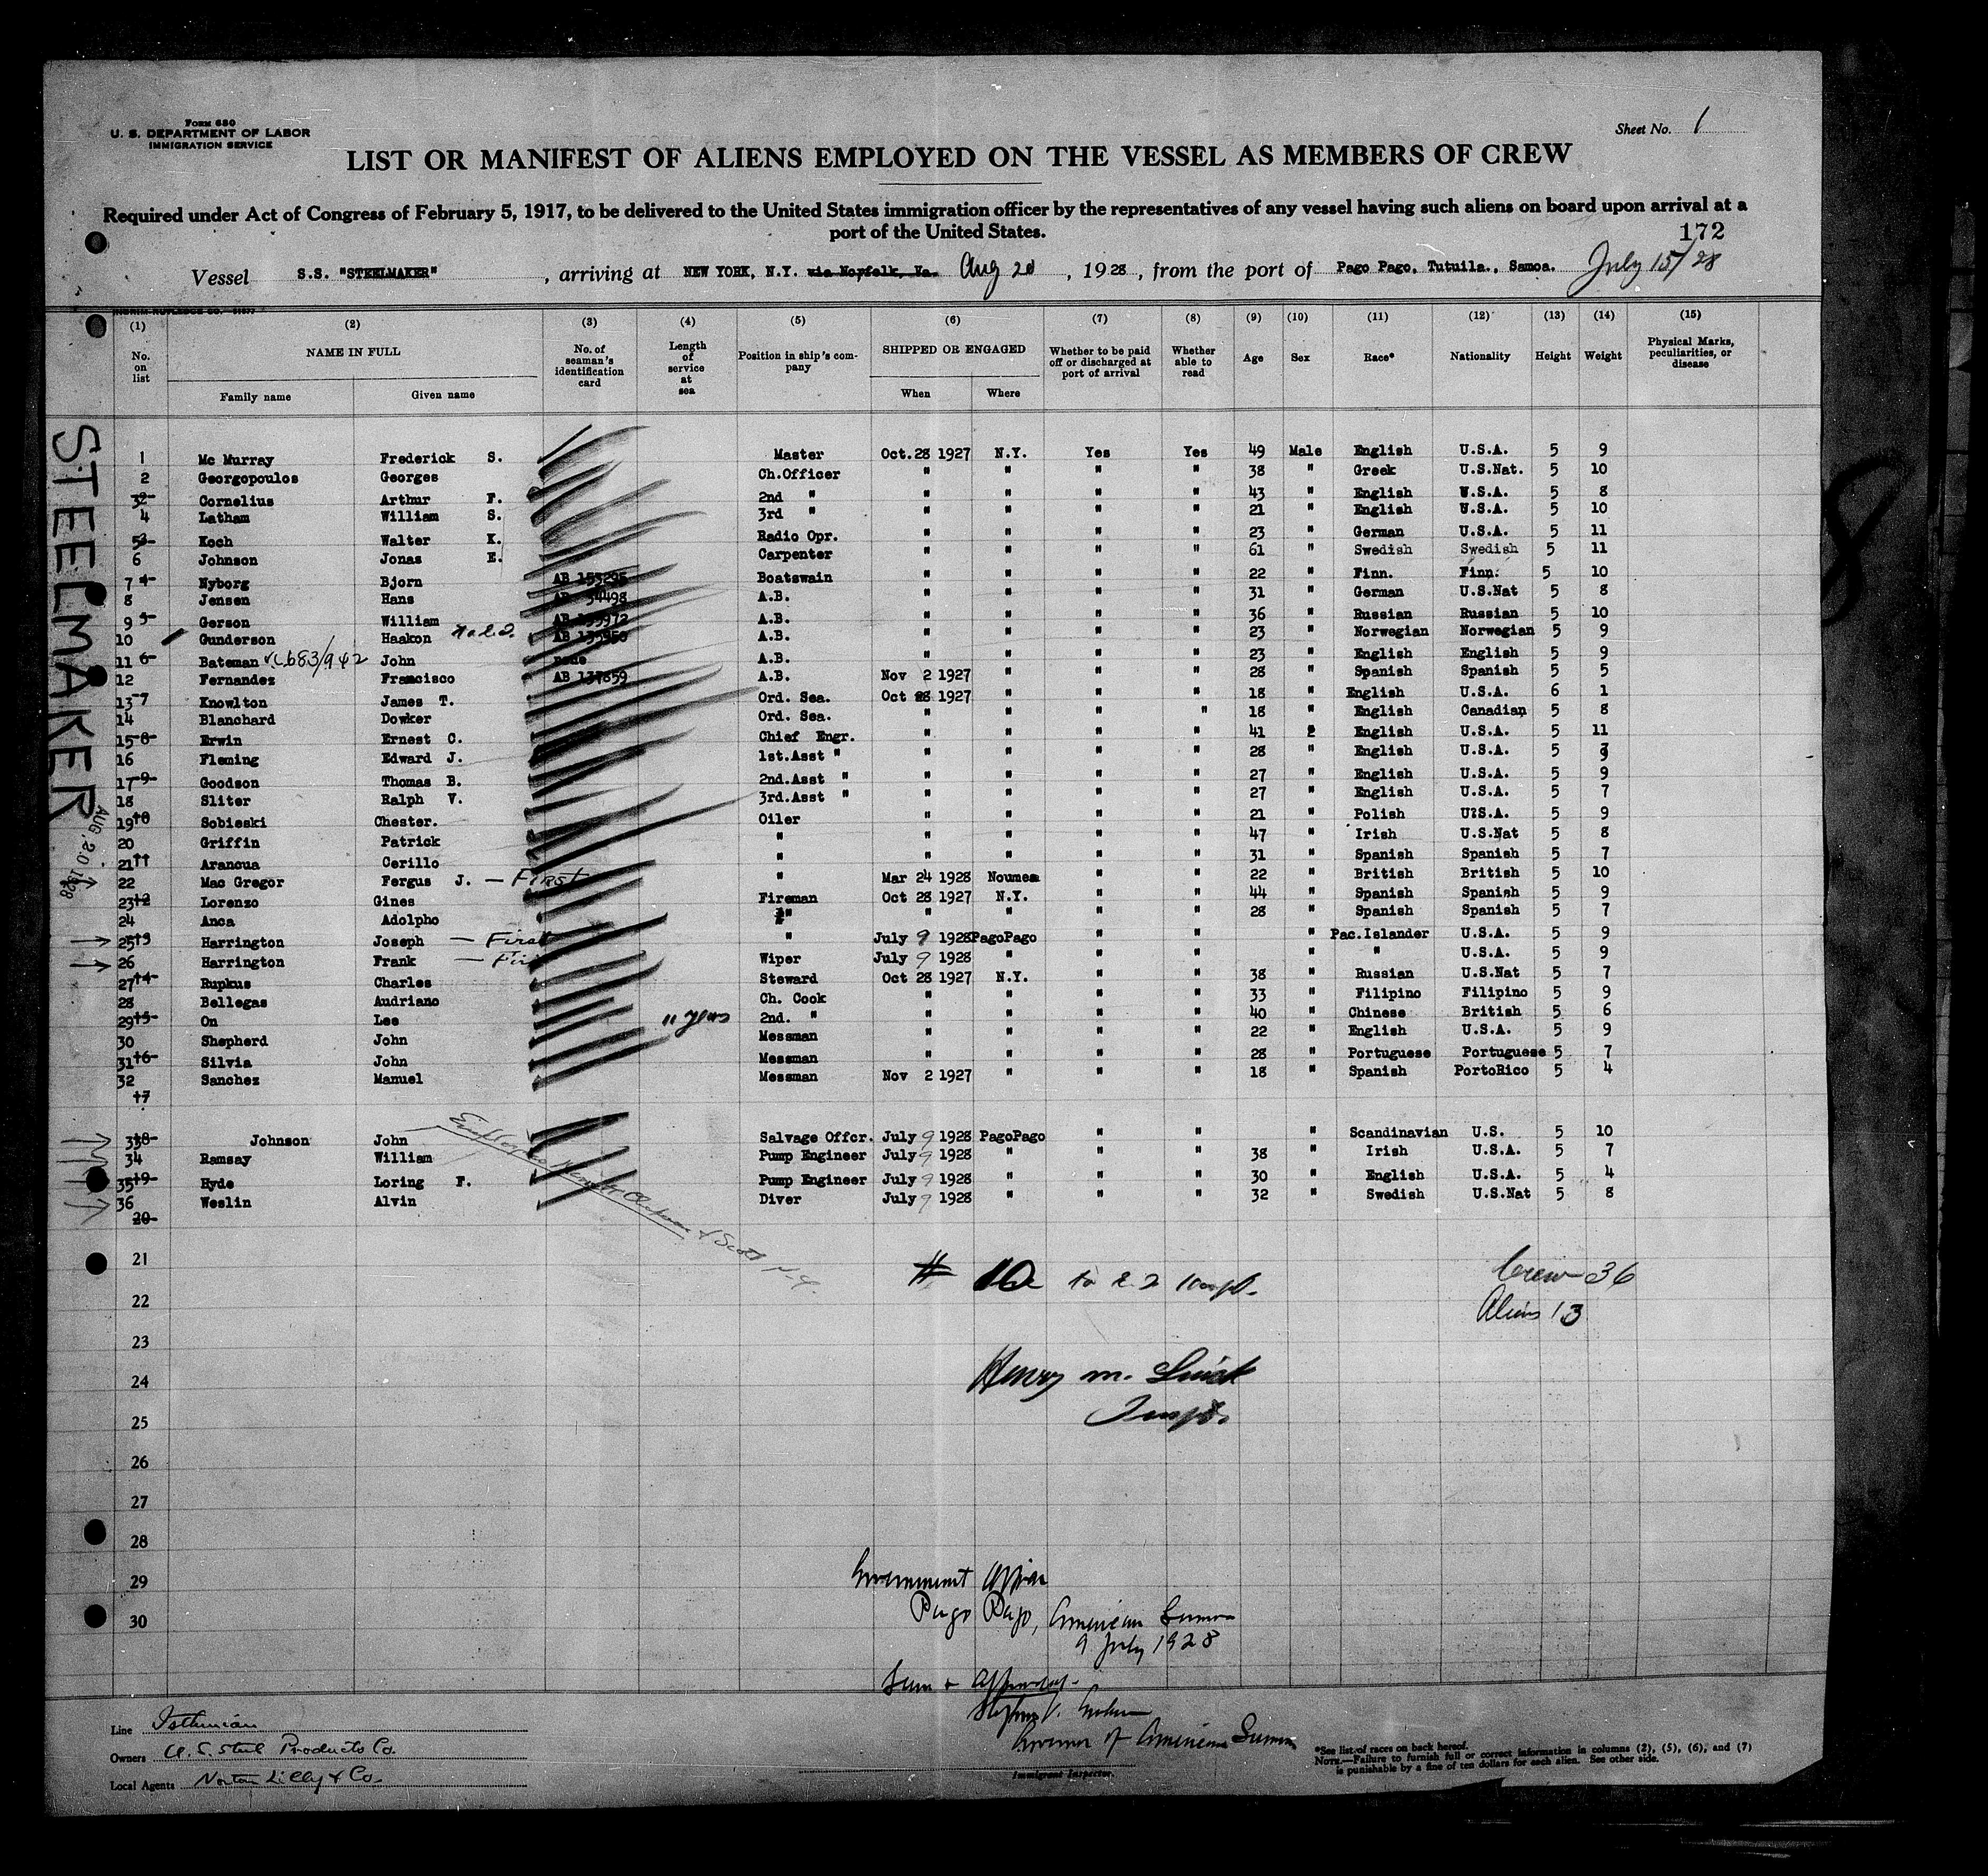 Form 680
U. S. DEPARTMENT OF LABOR
IMMIGRATION SERVICE
Sheet No. 1
LIST OR MANIFEST OF ALIENS EMPLOYED ON THE VESSEL AS MEMBERS OF CREW
Required under Act of Congress of February 5, 1917, to be delivered to the United States immigration officer by the representatives of any vessel having such aliens on board upon arrival at a
port of the United States.
172
Vessel S.S. "STEELMAKER", arriving at NEW YORK, N.Y. via Norfolk, Va. Aug 20, 1928, from the port of Pago Pago, Tutuila., Samoa. July 15/28
(1) (2) (3) (4) (5) (6) (7) (8) (9) (10) (11) (12) (13) (14) (15)
No. on list NAME IN FULL Family name Given name No. of seaman's identification card Length of service at sea Position in ship's company SHIPPED OR ENGAGED When Where Whether to be paid off or discharged at port of arrival Whether able to read Age Sex Race* Nationality Height Weight Physical Marks, peculiarities, or disease
STEELMAKER
AUG. 20 1928
1 Mc Murray Frederick S. Master Oct. 28 1927 N.Y. Yes Yes 49 Male English U.S.A. 5 9
2 Georgopoulos Georges Ch.Officer " " " " 38 " Greek U.S.Nat. 5 10
3 Cornelius Arthur F. 2nd " " " " " 43 " English U.S.A. 5 8
4 Latham William S. 3rd " " " " " 21 " English U.S.A. 5 10
5 Koch Walter K. Radio Opr. " " " " 23 " German U.S.A. 5 11
6 Johnson Jonas E. Carpenter " " " " 61 " Swedish Swedish 5 11
7 Nyborg Bjorn AB 153295 Boatswain " " " " 22 " Finn. Finn. 5 10
8 Jensen Hans AB 34498 A.B. " " " " 31 " German U.S.Nat 5 8
9 Gerson William A.B. " " " " 36 " Russian Russian 5 10
10 Gunderson Haakon A.B. " " " " 23 " Norwegian Norwegian 5 9
11 Bateman John none A.B. " " " " 23 " English English 5 9
12 Fernandez Francisco AB 137659 A.B. Nov 2 1927 " " " 28 " Spanish Spanish 5 5
13 Knowlton James T. Ord. Sea. Oct 28 1927 " " " 18 " English U.S.A. 6 1
14 Blanchard Dowker Ord. Sea. " " " " 18 " English Canadian 5 8
15 Erwin Ernest C. Chief Engr. " " " " 41 2 English U.S.A. 5 11
16 Fleming Edward J. 1st.Asst " " " " " 28 " English U.S.A. 5
17 Goodson Thomas B. 2nd.Asst " " " " " 27 " English U.S.A. 5 9
18 Sliter Ralph V. 3rd.Asst " " " " " 27 " English U.S.A. 5 7
19 Sobieski Chester. Oiler " " " " 21 " Polish U?S.A. 5 9
20 Griffin Patrick " " " " " 47 " Irish U.S.Nat 5 8
21 Arancua Cerillo " " " " " 31 " Spanish Spanish 5 7
22 Mac Gregor Fergus J. — First " Mar 24 1928 Noumea " " 22 " British British 5 10
23 Lorenzo Gines Fireman Oct 28 1927 N.Y. " " 44 " Spanish Spanish 5 9
24 Anca Adolpho " " " " " 28 " Spanish Spanish 5 7
25 Harrington Joseph — First " July 9 1928 PagoPago " " " Pac.Islander U.S.A. 5 9
26 Harrington Frank — First Wiper July 9 1928 " " " " " U.S.A. 5 9
27 Rupkus Charles Steward Oct 28 1927 N.Y. " " 38 " Russian U.S.Nat 5 7
28 Bellegas Audriano Ch. Cook " " " " 33 " Filipino Filipino 5 9
29 On Lee 11 years 2nd. " " " " " 40 " Chinese British 5 6
30 Shepherd John Messman " " " " 22 " English U.S.A. 5 9
31 Silvia John Messman " " " " 28 " Portuguese Portuguese 5 7
32 Sanchez Manuel Messman Nov 2 1927 " " " 18 " Spanish PortoRico 5 4
17
33 Johnson John Salvage Offcr. July 9 1928 PagoPago " " " Scandinavian U.S. 5 10
34 Ramsay William Pump Engineer July 9 1928 " " " 38 " Irish U.S.A. 5 7
35 Hyde Loring F. Pump Engineer July 9 1928 " " " 30 " English U.S.A. 5 4
36 Weslin Alvin Diver July 9 1928 " " " 32 " Swedish U.S.Nat 5 8
20
21
# 10
Crew 36
22
Aliens 13
23
24
Henry M.
25
Inspr.
26
27
28
29
Government Office
30
Pago Pago, American Samoa
9 July 1928
Seen & Approved.
Governor of American Samoa
Line Isthmian
Owners U.S. Steel Products Co.
Local Agents Norton Lilly & Co.
Immigrant Inspector.
*See list of races on back hereof.
NOTE.—Failure to furnish full or correct information in columns (2), (5), (6), and (7)
is punishable by a fine of ten dollars for each alien. See other side.